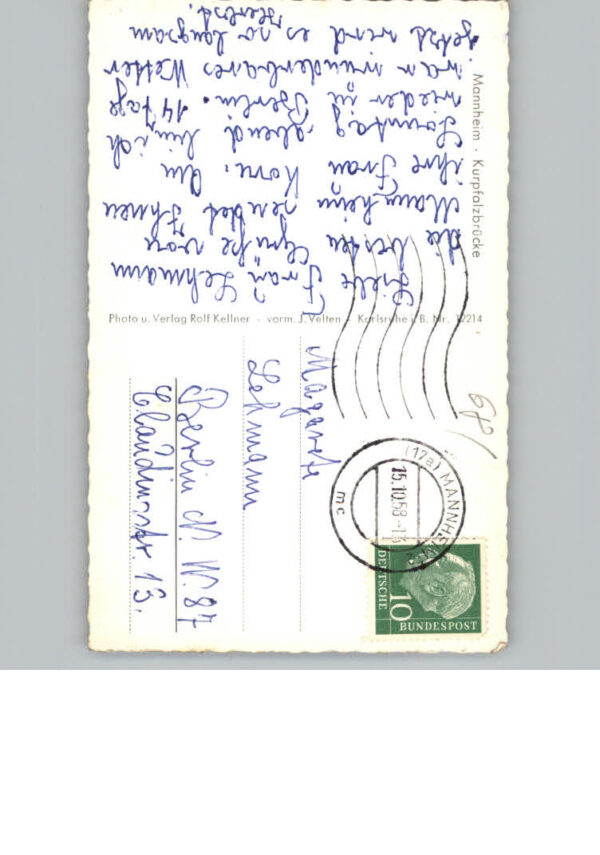 Mannheim - Kurpfalzbrücke
Liebe Frau Lehmann
die besten Grüße von
Mannheim sendet Ihnen
ihre Frau Korn. Am
Sonntag abend bin ich
wieder in Berlin. 14 Tage
war wunderbares Wetter
jetzt wird es so langsam
Herbst.
Photo u. Verlag Rolf Kellner - vorm. J. Velten - Karlsruhe i. B. Nr. 17214
68
(17a) MANNHEIM
15.10.58-13
mc
DEUTSCHE
BUNDESPOST
10
Magarete
Lehmann
Berlin N. W. 87
Claudiusstr. 13.